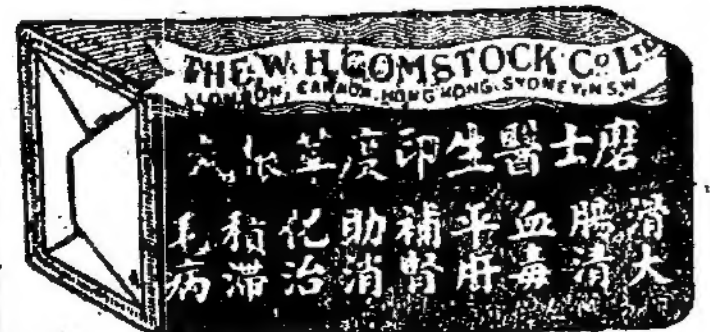 THE W. H. COMSTOCK Co. LTD.
LONDON, HONG KONG. SYDNEY, N.S.W
磨士醫生印度草根丸
滑大
腸清
血毒
平肝
補腎
助消
化治
積滯
毛病